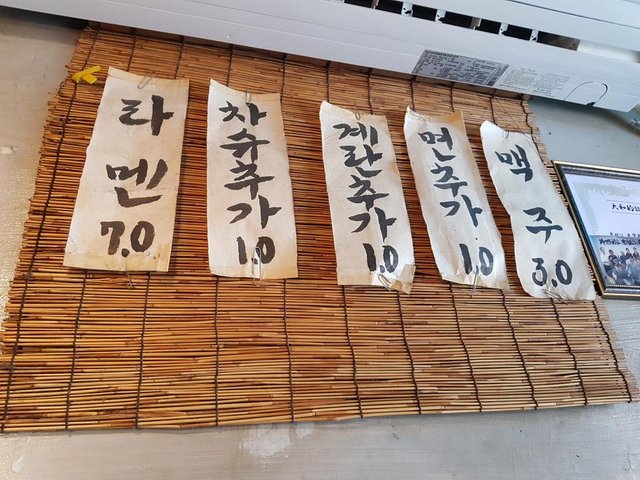 라
멘
7.0
차
슈
추
가
1.0
계
란
추
가
1.0
면
추
가
1.0
맥
주
3.0